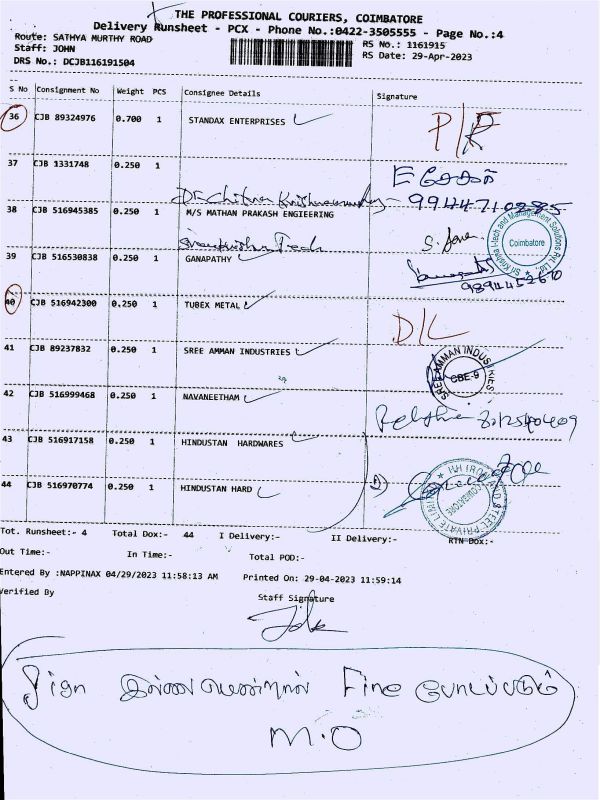 THE PROFESSIONAL COURIERS, COIMBATORE
Delivery Runsheet - PCX - Phone No.:0422-3505555 - Page No.:4
Route: SATHYA MURTHY ROAD
Staff: JOHN
DRS No.: DCJB116191504
RS No.: 1161915
RS Date: 29-Apr-2023
S No Consignment No Weight PCS Consignee Details Signature
36 CJB 89324976 0.700 1 STANDAX ENTERPRISES
37 CJB 1331748 0.250 1
Dr Chitra
9944710 2885
38 CJB 516945385 0.250 1 M/S MATHAN PRAKASH ENGIEERING
Sri Krishna I-tech and Management Solutions Pvt. Ltd. Coimbatore
39 CJB 516530838 0.250 1 GANAPATHY
9894452670
40 CJB 516942300 0.250 1 TUBEX METAL D/L
41 CJB 89237832 0.250 1 SREE AMMAN INDUSTRIES
SREE AMMAN INDUSTRIES CBE-9
42 CJB 516999468 0.250 1 NAVANEETHAM
43 CJB 516917158 0.250 1 HINDUSTAN HARDWARES
44 CJB 516970774 0.250 1 HINDUSTAN HARD
Tot. Runsheet:- 4 Total Dox:- 44 I Delivery:- II Delivery:- RTN Dox:-
Out Time:- In Time:- Total POD:-
Entered By :NAPPINAX 04/29/2023 11:58:13 AM Printed On: 29-04-2023 11:59:14
Verified By Staff Signature
Sign இல்லையென்றால் Fine போடப்படும்
M.O